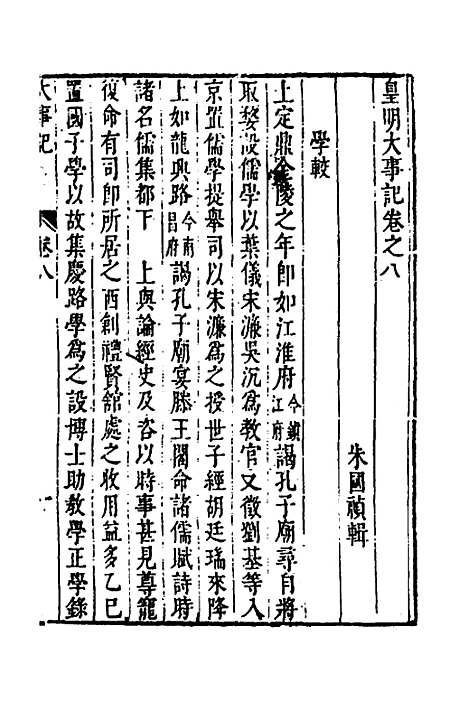 皇明大事記卷之八
朱國禎輯
學較
上定鼎金陵之年卽如江淮府今鎮江府謁孔子廟尋自將
取婺設儒學以葉儀宋濂吳沉爲教官又徵劉基等入
京置儒學提舉司以宋濂爲之授世子經胡廷瑞來降
上如龍興路今南昌府謁孔子廟宴滕王閣命諸儒賦詩時
諸名儒集都下　上與論經史及咨以時事甚見尊寵
復命有司卽所居之西創禮賢館處之收用益多乙巳
置國子學以故集慶路學爲之設博士助教學正學錄
大事記
卷八